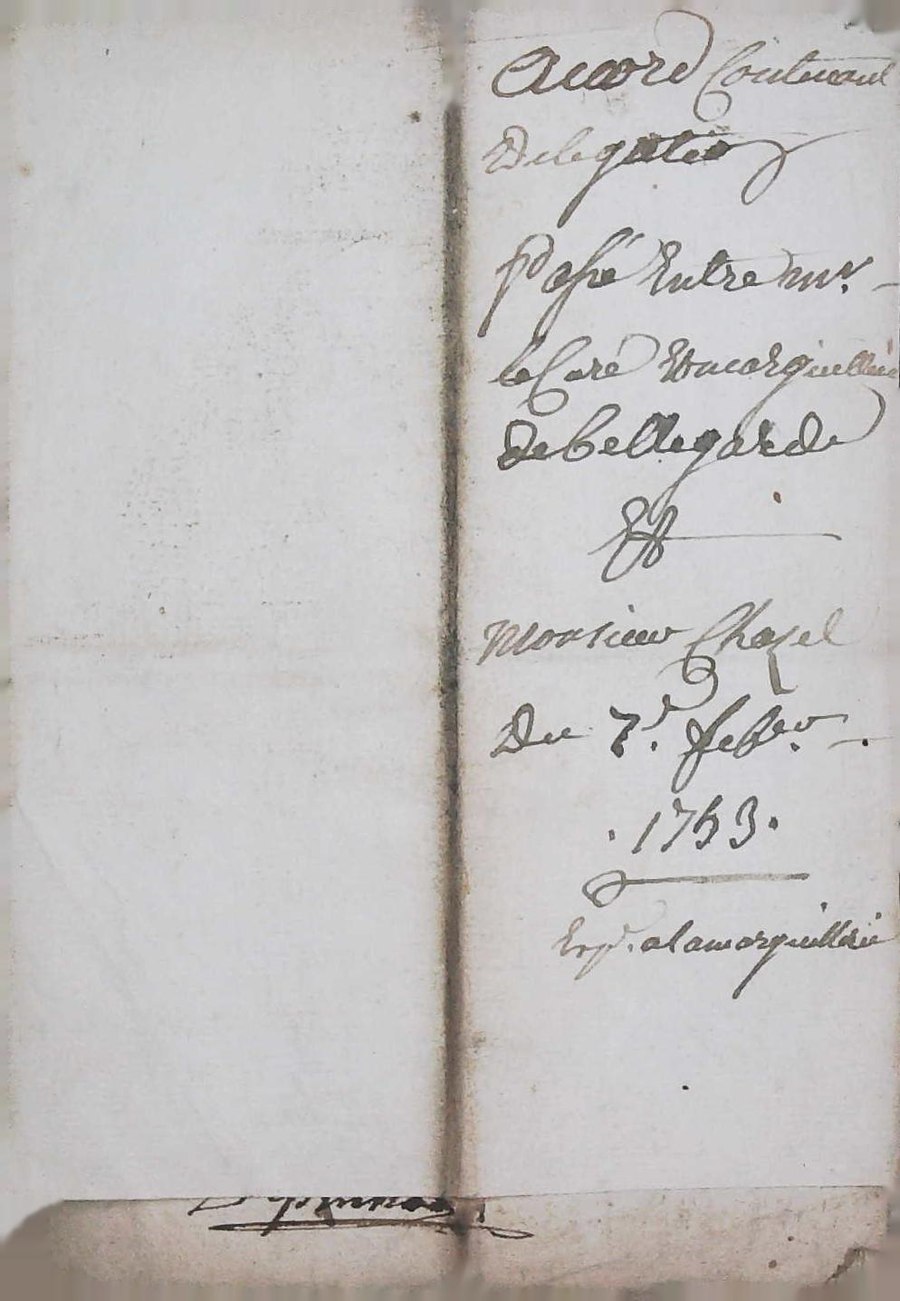 Accord Contenant
Delegation
Passé Entre Mr.
le Curé Et Marguilliers
de bellegarde
Et
Monsieur Chazel
Du 7e. febvr.
. 1753 .
Exp. a la marguillerie